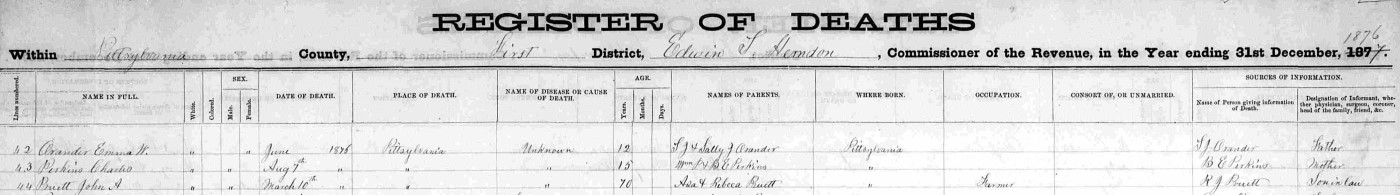 REGISTER OF DEATHS
Within Pittsylvania County, First District, Edwin S. Herndon, Commissioner of the Revenue, in the Year ending 31st December, 1876 187
Lines numbered. NAME IN FULL. White. Colored. SEX. Male. Female. DATE OF DEATH. PLACE OF DEATH. NAME OF DISEASE OR CAUSE OF DEATH. AGE. Years. Months. Days. NAMES OF PARENTS. WHERE BORN. OCCUPATION. CONSORT OF, OR UNMARRIED. SOURCES OF INFORMATION. Name of Person giving information of Death. Designation of Informant, whether physician, surgeon, coroner, head of the family, friend, &c.
42 Orander Emma W. " " June 1876 Pittsylvania Unknown 12 S J & Sally J Orander Pittsylvania S J Orander Father
43 Perkins Charles " " Aug 7th " " " 15 Wm & B E Perkins " B E Perkins Mother
44 Pruett John A " " March 10th " " " 70 Asa & Rebeca Pruett " Farmer R J Pruett Son in Law